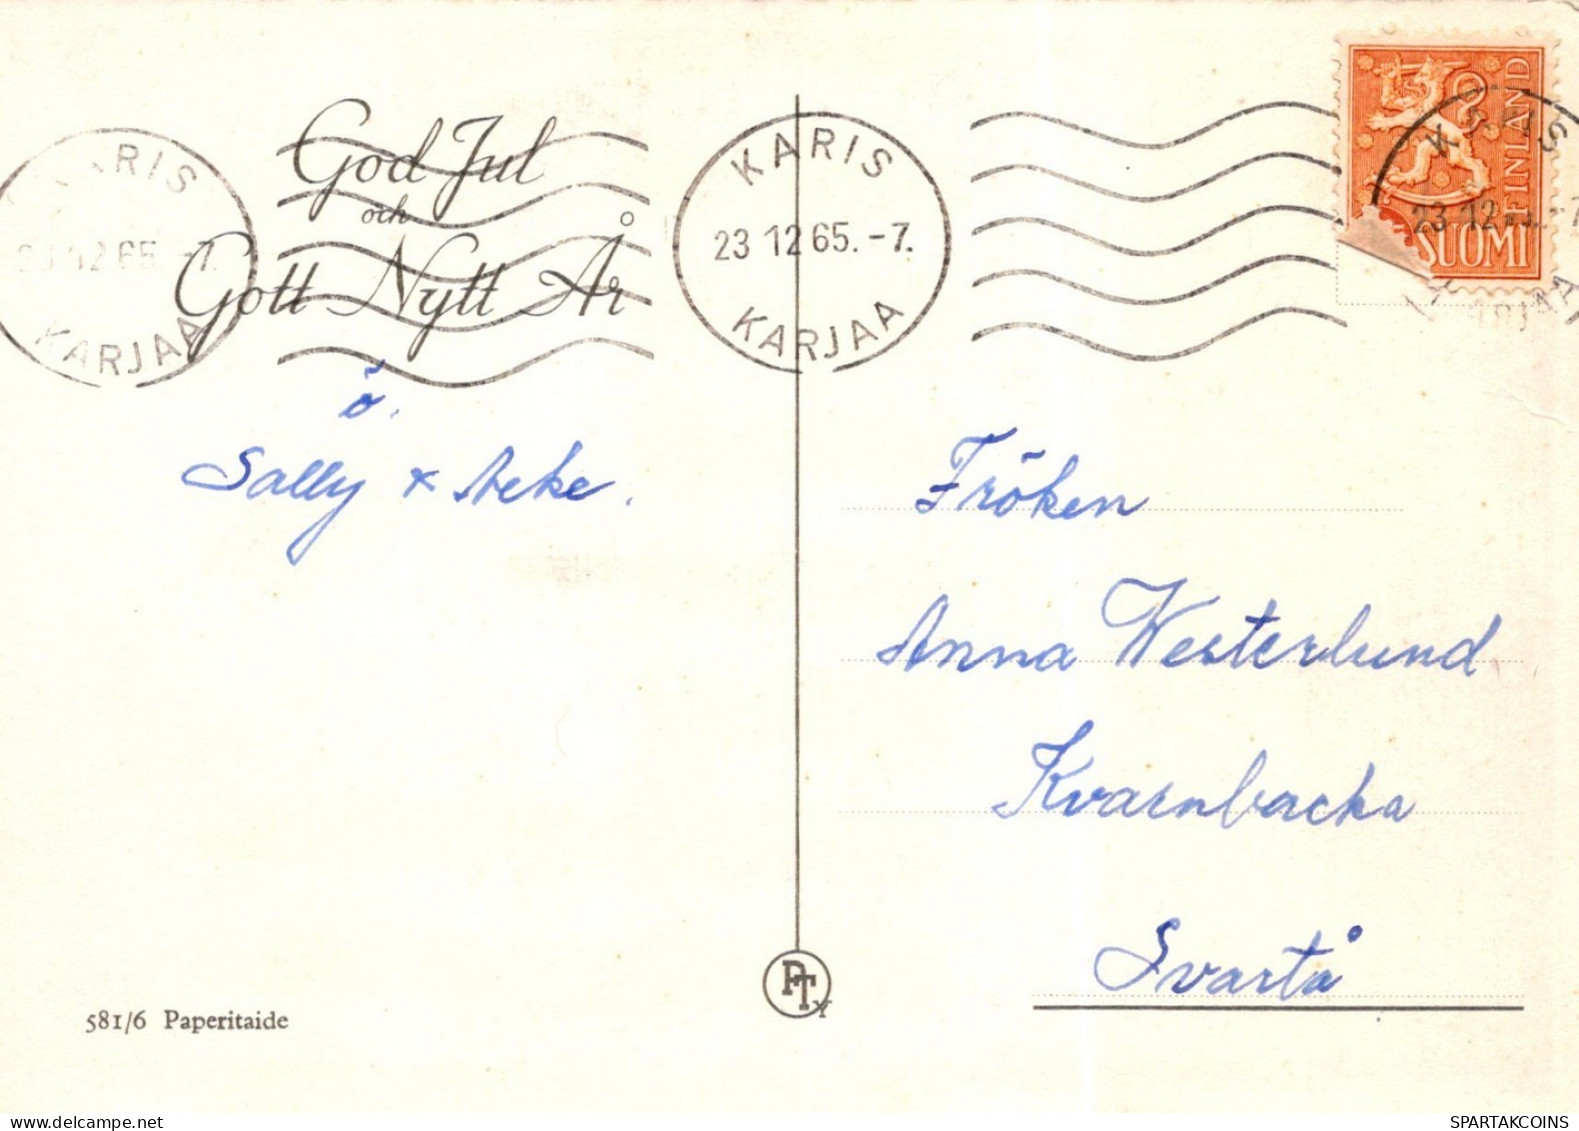 God Jul
och
Gott Nytt År
ö.
Sally & Acke.
581/6 Paperitaide
PTY
KARIS
23 12 65.-7.
KARJAA
KARIS
23 12 65.-7.
KARJAA
FINLAND
SUOMI
KARIS
23 12 -7
KARJAA
Fröken
Anna Westerlund
Kvarnbacka
Svartå
SPARTAKCOINS